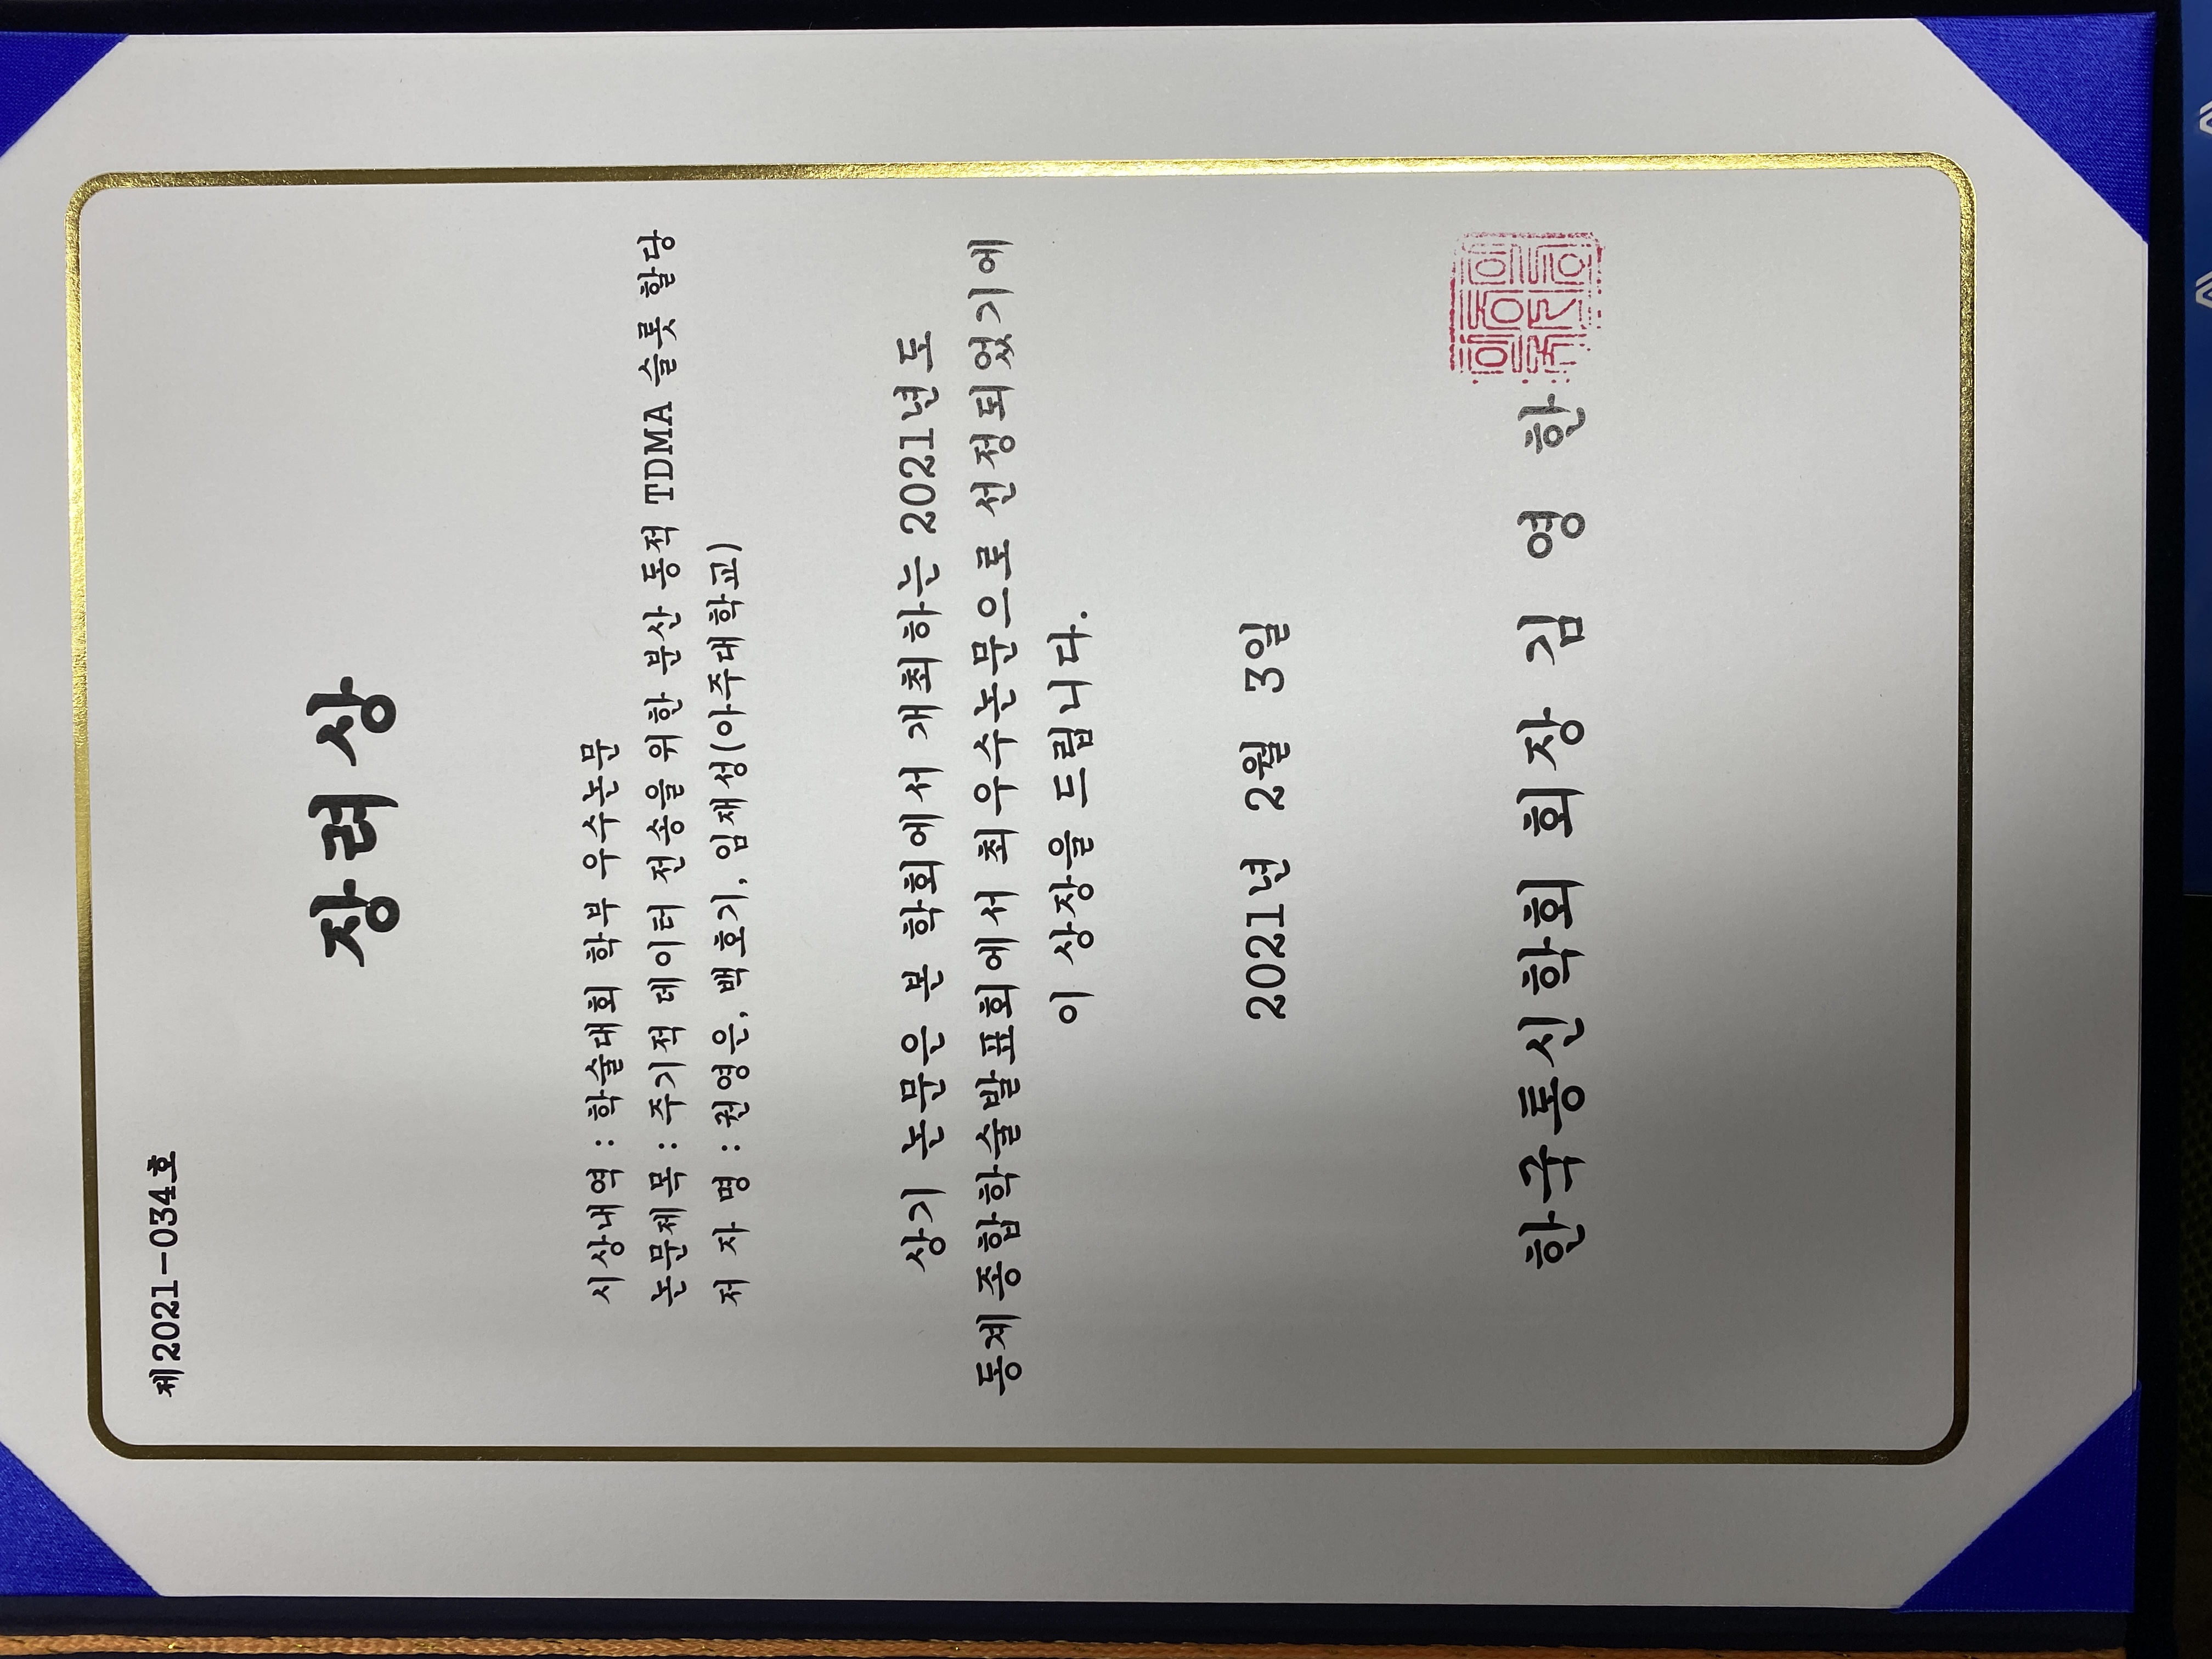 제2021-034호
장려상
시상내역 : 학술대회 학부 우수논문
논문제목 : 주기적 데이터 전송을 위한 분산 동적 TDMA 슬롯 할당
저 자 명 : 권영은, 백호기, 임재성(아주대학교)
상기 논문은 본 학회에서 개최하는 2021년도
동계종합학술발표회에서 최우수논문으로 선정되었기에
이 상장을 드립니다.
2021년 2월 3일
한국통신학회 회장 김 영 한